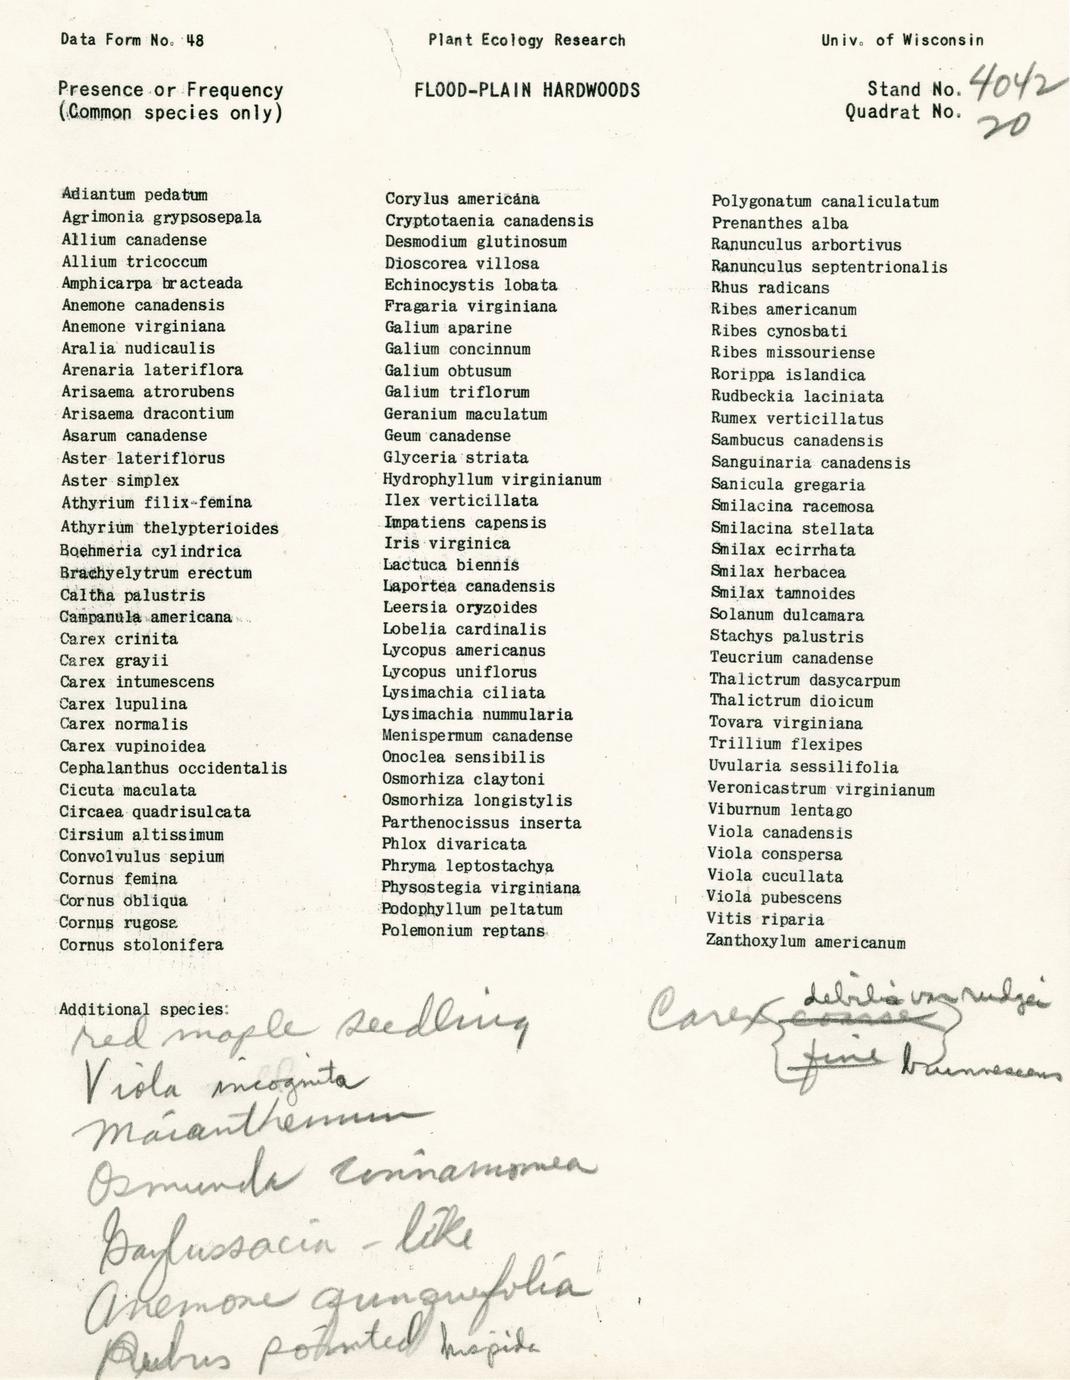 Data Form No. 48
Plant Ecology Research
Univ. of Wisconsin
Presence or Frequency
(Common species only)
FLOOD-PLAIN HARDWOODS
Stand No. 4042
Quadrat No. 20
Adiantum pedatum
Agrimonia grypsosepala
Allium canadense
Allium tricoccum
Amphicarpa bracteada
Anemone canadensis
Anemone virginiana
Aralia nudicaulis
Arenaria lateriflora
Arisaema atrorubens
Arisaema dracontium
Asarum canadense
Aster lateriflorus
Aster simplex
Athyrium filix-femina
Athyrium thelypterioides
Boehmeria cylindrica
Brachyelytrum erectum
Caltha palustris
Campanula americana
Carex crinita
Carex grayii
Carex intumescens
Carex lupulina
Carex normalis
Carex vupinoidea
Cephalanthus occidentalis
Cicuta maculata
Circaea quadrisulcata
Cirsium altissimum
Convolvulus sepium
Cornus femina
Cornus obliqua
Cornus rugosa
Cornus stolonifera
Corylus americana
Cryptotaenia canadensis
Desmodium glutinosum
Dioscorea villosa
Echinocystis lobata
Fragaria virginiana
Galium aparine
Galium concinnum
Galium obtusum
Galium triflorum
Geranium maculatum
Geum canadense
Glyceria striata
Hydrophyllum virginianum
Ilex verticillata
Impatiens capensis
Iris virginica
Lactuca biennis
Laportea canadensis
Leersia oryzoides
Lobelia cardinalis
Lycopus americanus
Lycopus uniflorus
Lysimachia ciliata
Lysimachia nummularia
Menispermum canadense
Onoclea sensibilis
Osmorhiza claytoni
Osmorhiza longistylis
Parthenocissus inserta
Phlox divaricata
Phryma leptostachya
Physostegia virginiana
Podophyllum peltatum
Polemonium reptans
Polygonatum canaliculatum
Prenanthes alba
Ranunculus arbortivus
Ranunculus septentrionalis
Rhus radicans
Ribes americanum
Ribes cynosbati
Ribes missouriense
Rorippa islandica
Rudbeckia laciniata
Rumex verticillatus
Sambucus canadensis
Sanguinaria canadensis
Sanicula gregaria
Smilacina racemosa
Smilacina stellata
Smilax ecirrhata
Smilax herbacea
Smilax tamnoides
Solanum dulcamara
Stachys palustris
Teucrium canadense
Thalictrum dasycarpum
Thalictrum dioicum
Tovara virginiana
Trillium flexipes
Uvularia sessilifolia
Veronicastrum virginianum
Viburnum lentago
Viola canadensis
Viola conspersa
Viola cucullata
Viola pubescens
Vitis riparia
Zanthoxylum americanum
Additional species:
red maple seedling
Viola incognita
Maianthemum
Osmunda cinnamomea
Gaylussacia - like
Anemone qunquefolia
Rubus pointed hispida
debilis var rudgei
Carex coarse
fine brunnescens